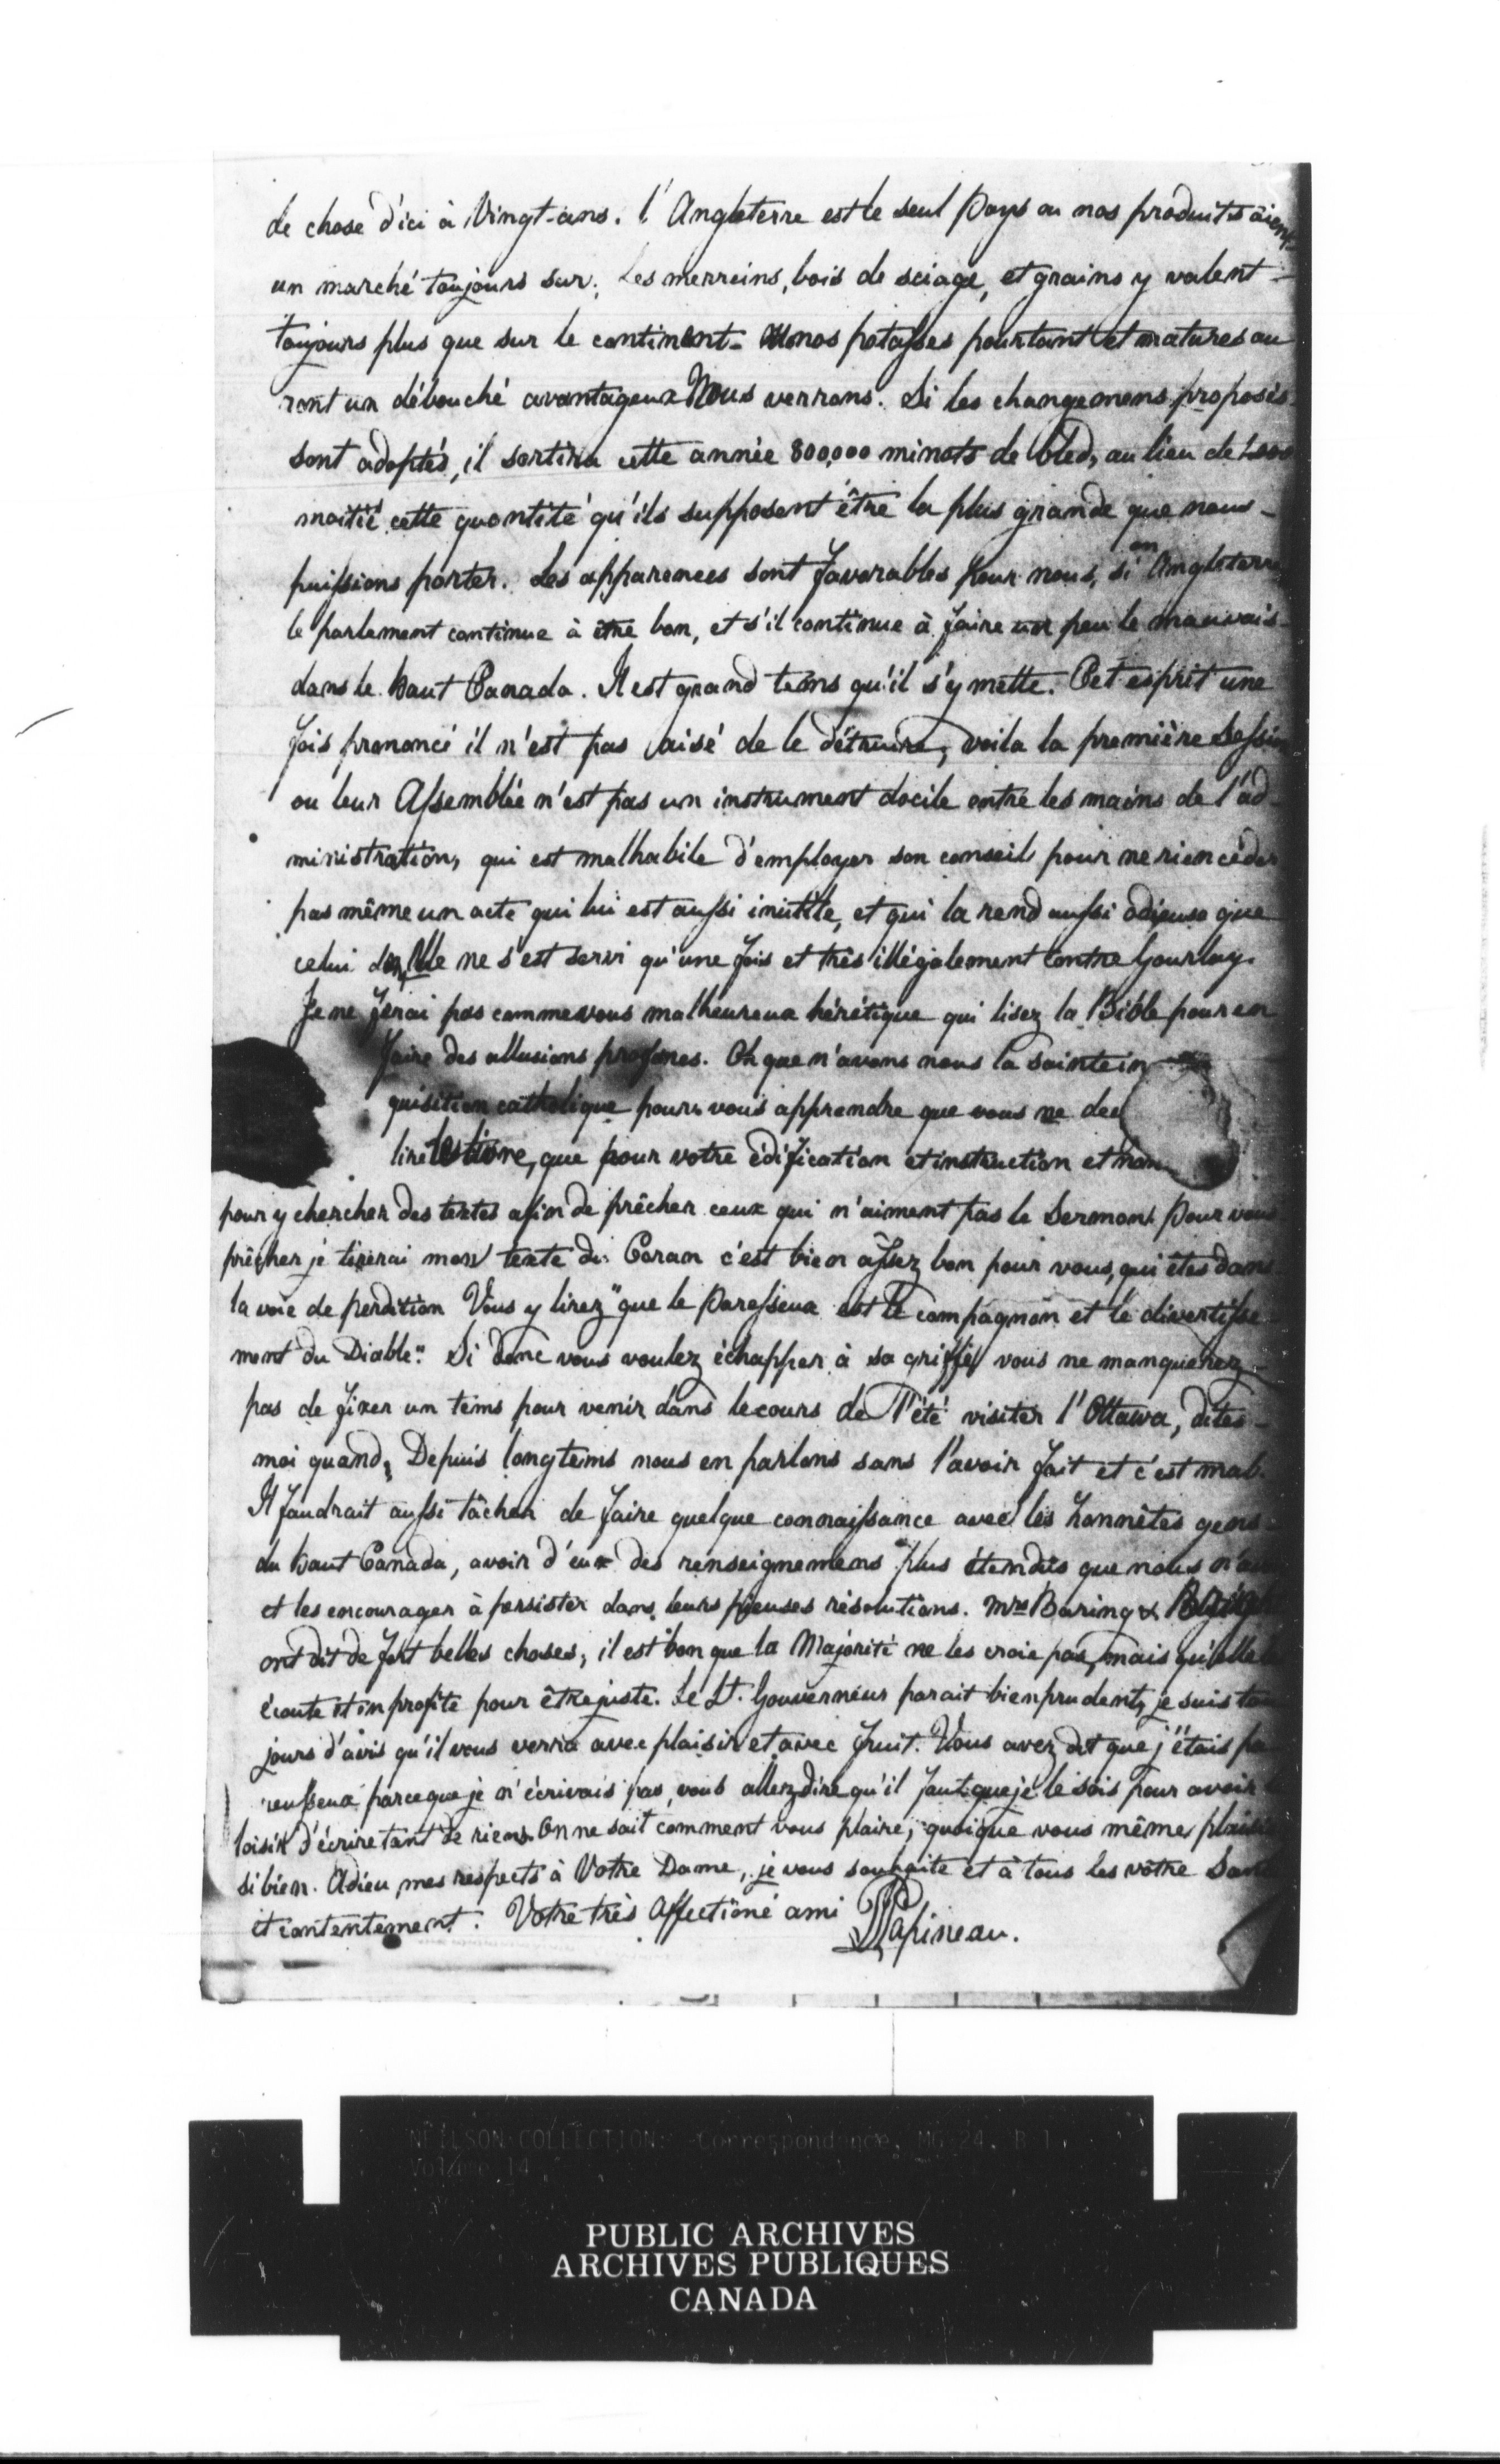 de chose d'ici à Vingt-ans. l'Angleterre est le seul Pays ou nos produits aient
un marché toujours sur. Les merreins, bois de sciage, et grains y valent
toujours plus que sur le continent. nos potasses pourtant et matures au
ront un débouché avantageux Nous verrons. Si les changemens proposés
sont adoptés, il sortira cette année 800,000 minots de bled, au lieu de
moitié cette quantité qu'ils supposent être la plus grande que nous
puissions porter. Les apparences sont favorables pour nous, si en Angleterre
le parlement continue à être bon, et s'il continue à faire un peu le mauvais
dans le haut Canada. Il est grand tems qu'il s'y mette. Cet esprit une
fois prononcé il n'est pas aisé de le détruire, voila la première Session
ou leur Assemblée n'est pas un instrument docile entre les mains de l'ad-
ministration, qui est malhabile d'employer son conseil pour ne rien céder
pas même un acte qui lui est aussi inutile, et qui la rend aussi odieuse que
celui ne s'est servi qu'une fois et très illégalement contre Gourlay.
Je ne ferai pas comme vous malheureux hérétique qui lisez la Bible pour en
faire des allusions profanes. Oh que n'avons nous la sainte in
quisition catholique pour vous apprendre que vous ne
lire que pour votre édification et instruction et non
pour y chercher des textes afin de prêcher ceux qui n'aiment pas le Sermon. Pour vous
prêcher je tirerai mon texte du Coran c'est bien assez bon pour vous, qui êtes dans
la voie de perdition Vous y lirez "que le Paresseux est le compagnon et le divertisse-
ment du Diable". Si donc vous voulez échapper à sa griffe vous ne manquerez
pas de fixer un tems pour venir dans le cours de l'été visiter l'Ottawa, dites-
moi quand. Depuis longtems nous en parlons sans l'avoir fait et c'est mal.
Il faudrait aussi tâcher de faire quelque connaissance avec les honnêtes gens
du haut Canada, avoir d'eux des renseignemens plus étendus que nous
et les encourager à persister dans leurs pieuses résolutions. Mrs Baring &
ont dit de fort belles choses, il est bon que la Majorité ne les croie pas, mais qu'elle
écoute et en profite pour être juste. Le Lt. Gouverneur parait bien prudent, je suis tou
jours d'avis qu'il vous verra avec plaisir et avec fruit. Vous avez dit que j'étais pa
resseux parceque je n'écrivais pas, vous allez dire qu'il faut que je le sois pour avoir
loisir d'écrire tant de riens. On ne sait comment vous plaire, quoique vous même
si bien. Adieu, mes respects à Votre Dame, je vous souhaite et à tous les vôtre Santé
et contentement. Votre très affectioné ami LJPapineau.
NEILSON COLLECTION: Correspondence, MG 24, B 1,
Volume 14
PUBLIC ARCHIVES
ARCHIVES PUBLIQUES
CANADA